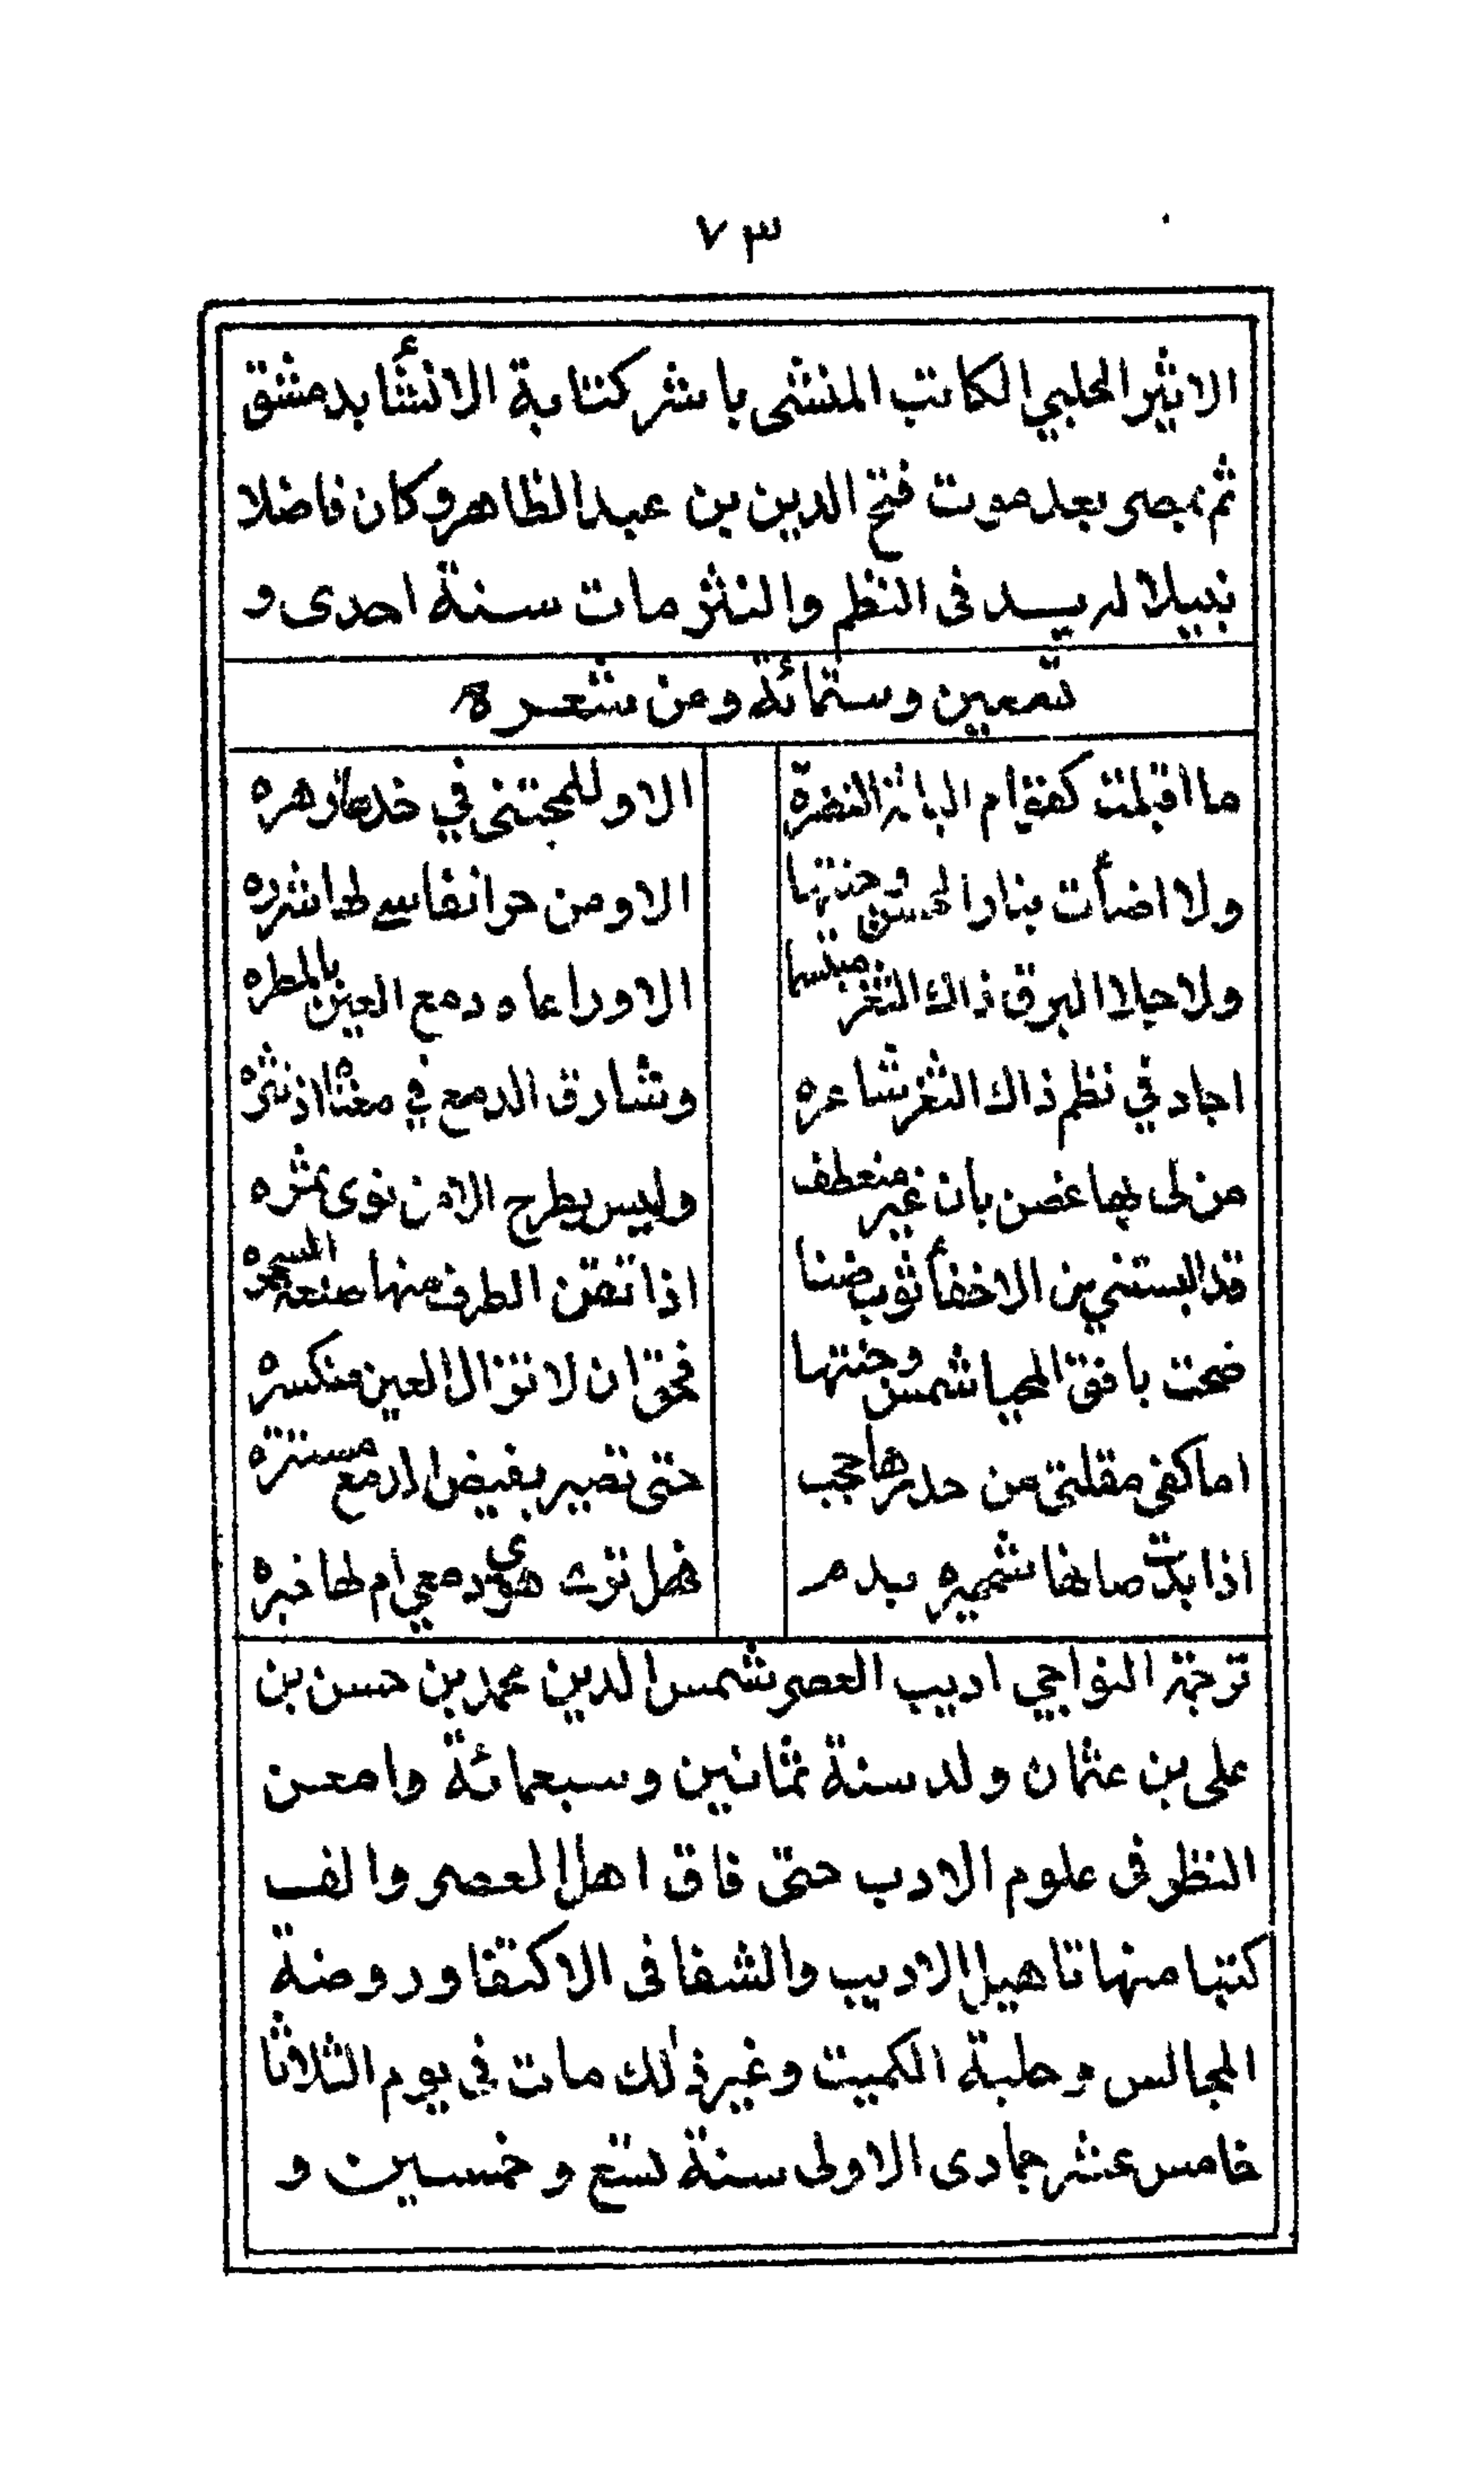 ٧٣
الاثير الحلبي الكاتب المنشى باشر كتابة الانشأ بدمشق
ثم بمصر بعد موت فتح الدين بن عبد الظاهر وكان فاضلا
نبيلا له يد فى النظم والنثر مات سنة احدى و
تسعين وستمائة ومن شعره
ما اقبلت كقوام البانة النضرة الا وللمجتنى في خدها زهره
ولا اضأت بنار الحسن وجنتها الا ومن حر انفاسي لها شرره
ولا جلا البرق ذاك الثغر مبتسما الا وراعاه دمع العين بالمطره
اجاد في نظم ذاك الثغر شاعره وشارق الدمع في معناه اذ نثره
من لى بها غصن بان غير منعطف وليس يطرح الا من نوى ثمره
قد البستني من الاخفأ ثوب ضنا اذا تقن الطرف منها صنعة السحره
ضحت بافق المحيا شمس وجنتها فحق ان لا تزال العين منكسره
اما كفى مقلتى من حدرها حجب حتى تصير بفيض الدمع مستتره
اذا بدت صانها شمميره بدم فهل ترث هوى دمعي ام لها خبره
ترجمة النواجي اديب العصر شمس الدين محمد بن حسن بن
على بن عثمان ولد سنة ثمانين وسبعمائة وامعن
النظر فى علوم الادب حتى فاق اهل العصر والف
كتبا منها تاهيل الاديب والشفا فى الاكتفا وروضة
المجالس وحلبة الكميت وغير ذلك مات في يوم الثلاثا
خامس عشر جمادى الاولى سنة تسع وخمسين و